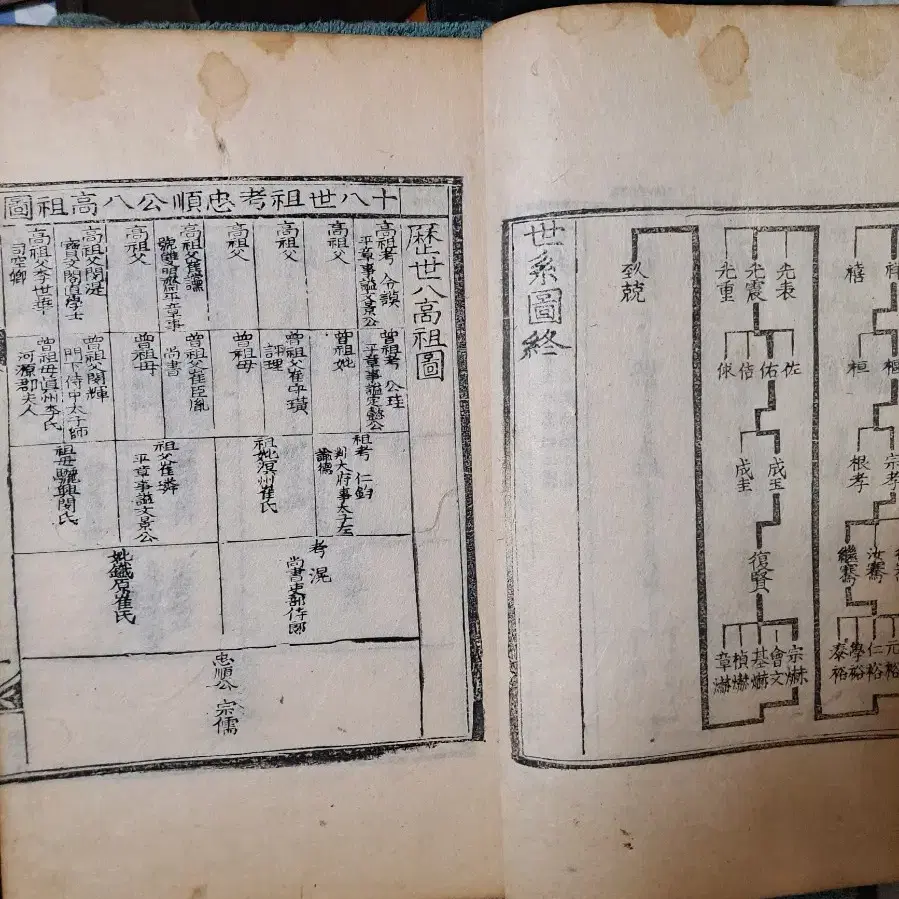 禧
桓
宗孝
根孝
汝騫
繼騫
元裕
仁裕
學裕
泰裕
光表
光震
光重
佐
佑
佶
俅
成玉
成圭
復賢
會文
致兢
世系圖終
十八世祖考忠順公八高祖圖
歷世八高祖圖
高祖考 令謨
平章事諡文景公
高祖父
高祖父
高祖父
高祖父崔讜
號雙明齋平章事
高祖父
高祖父閔湜
寶文閣直學士
高祖父李世華
曾祖考 公珪
平章事諡定懿公
曾祖妣
曾祖父崔守璜
評理
曾祖母
曾祖父崔臣胤
尚書
曾祖母
曾祖父閔輝
門下侍中太子師
曾祖母眞州李氏
河源郡夫人
祖考 仁鈞
判大府事太子左
諭德
祖妣溟州崔氏
祖父崔璘
平章事諡文景公
祖母驪興閔氏
考 滉
尚書吏部侍郎
妣鐵原崔氏
忠順公 宗儒